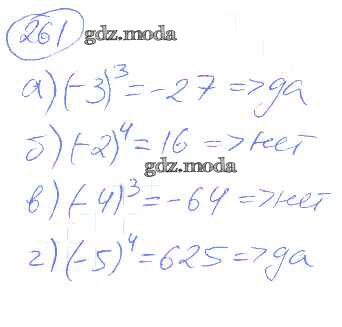 261 gdz.moda
а) (-3)³ = -27 => да
б) (-2)⁴ = 16 => нет
gdz.moda
в) (-4)³ = -64 => нет
г) (-5)⁴ = 625 => да